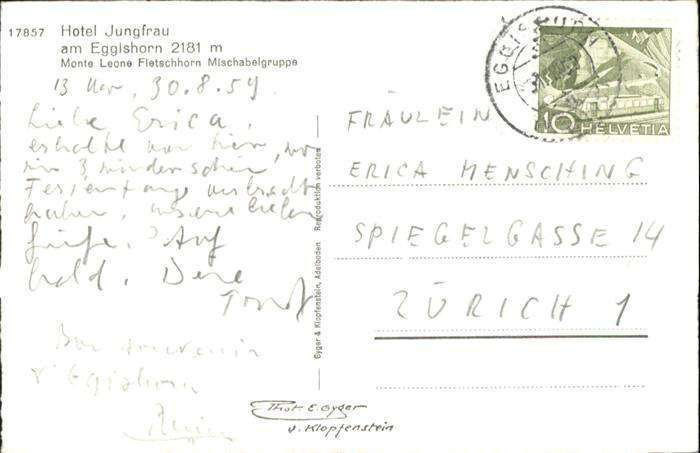 17857 Hotel Jungfrau
am Eggishorn 2181 m
Monte Leone Fletschhorn Mischabelgruppe
30.8.59.
Liebe Erica,
erhalte von hier, wo
wir 3 wunderschöne
Ferientage verbracht
haben, unsere lieben
Grüße. Auf
bald. Deine
Bon souvenir
d'Eggishorn
Gyger & Klopfenstein, Adelboden Reproduktion verboten
EGGISHORN
10 HELVETIA
FRÄULEIN
ERICA MENSCHING
SPIEGELGASSE 14
ZÜRICH 1
Phot. E. Gyger
u. Klopfenstein